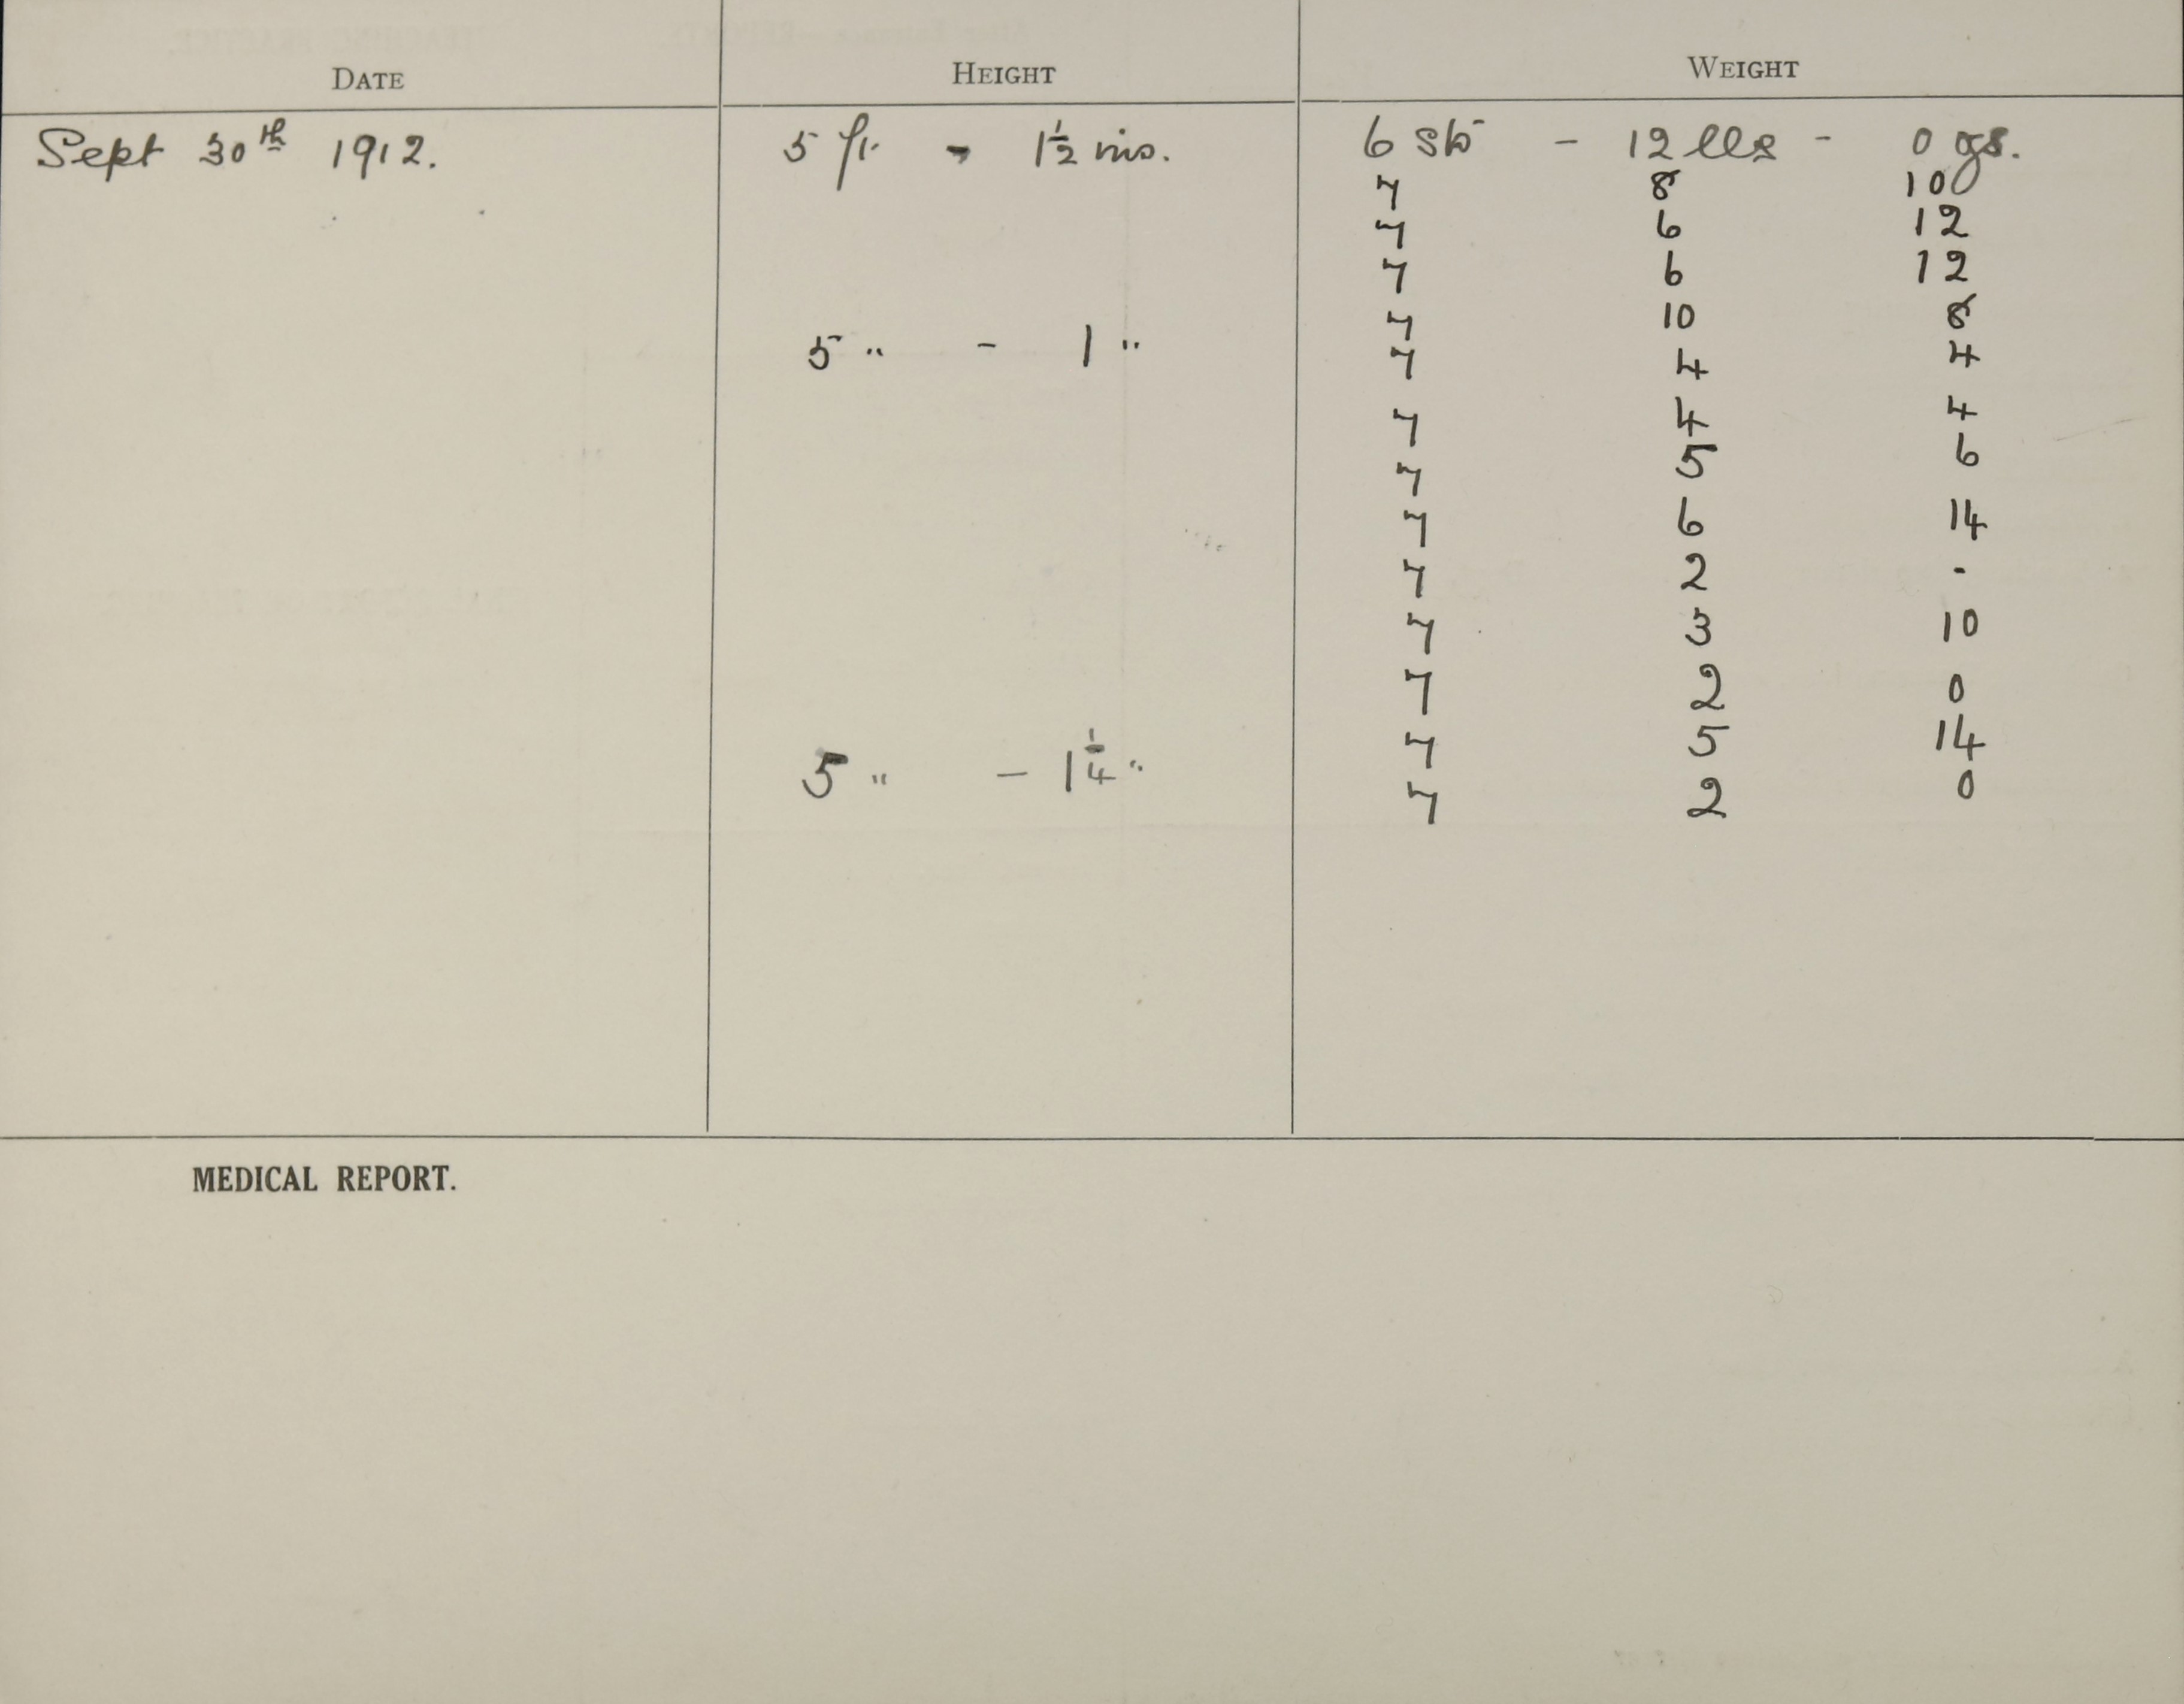 DATE HEIGHT WEIGHT
Sept 30th 1912. 5 ft. - 1½ ins. 6 sts - 12 lbs - 0 ozs.
7 8 10
7 6 12
7 6 12
7 10 8
5 " - 1 " 7 4 4
7 4 4
7 5 6
7 6 14
7 2 -
7 3 10
7 2 0
7 5 14
5 " - 1¼ " 7 2 0
MEDICAL REPORT.